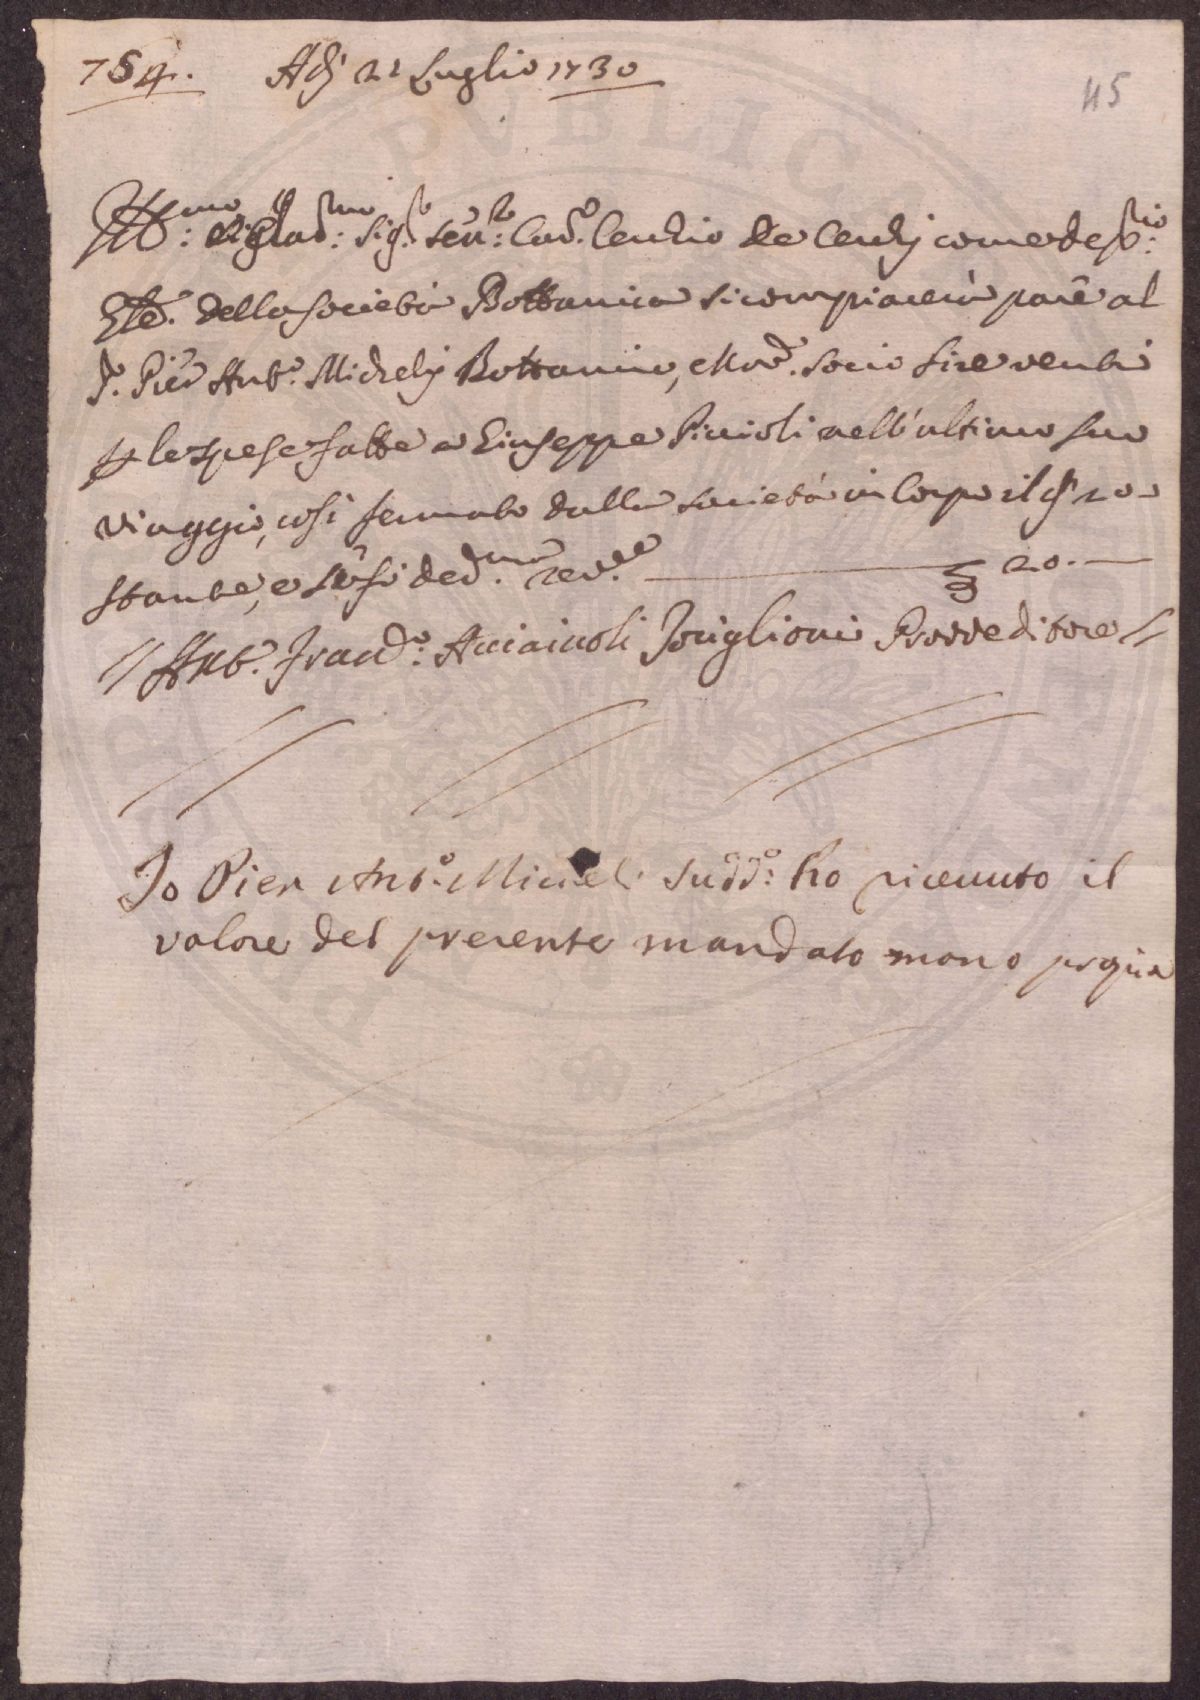 754. Adj 21 Luglio 1730
45
Ill:mo e Clar:mo Sig.r Sen:re Cav.re Cerchio de Cerchj come deposi:rio
Gle. della società Bottanica si compiacerà pare al
S.r Pier Ant.o Michelj Bottanico, e Nro. socio lire venti
p le spese fatte a Giuseppe Piccioli nell'ultimo suo
viaggio, così fermato dalla società in Corpo il dì 20
stante, e li si ded.mo rev.te ——— £ 20.—
// Ant.o Franc.o: Acciaiuoli Toriglioni Provveditore //
Io Pier Ant.o Micheli Sudd.o: ho riceuuto il
valore del presente mandato mano propria